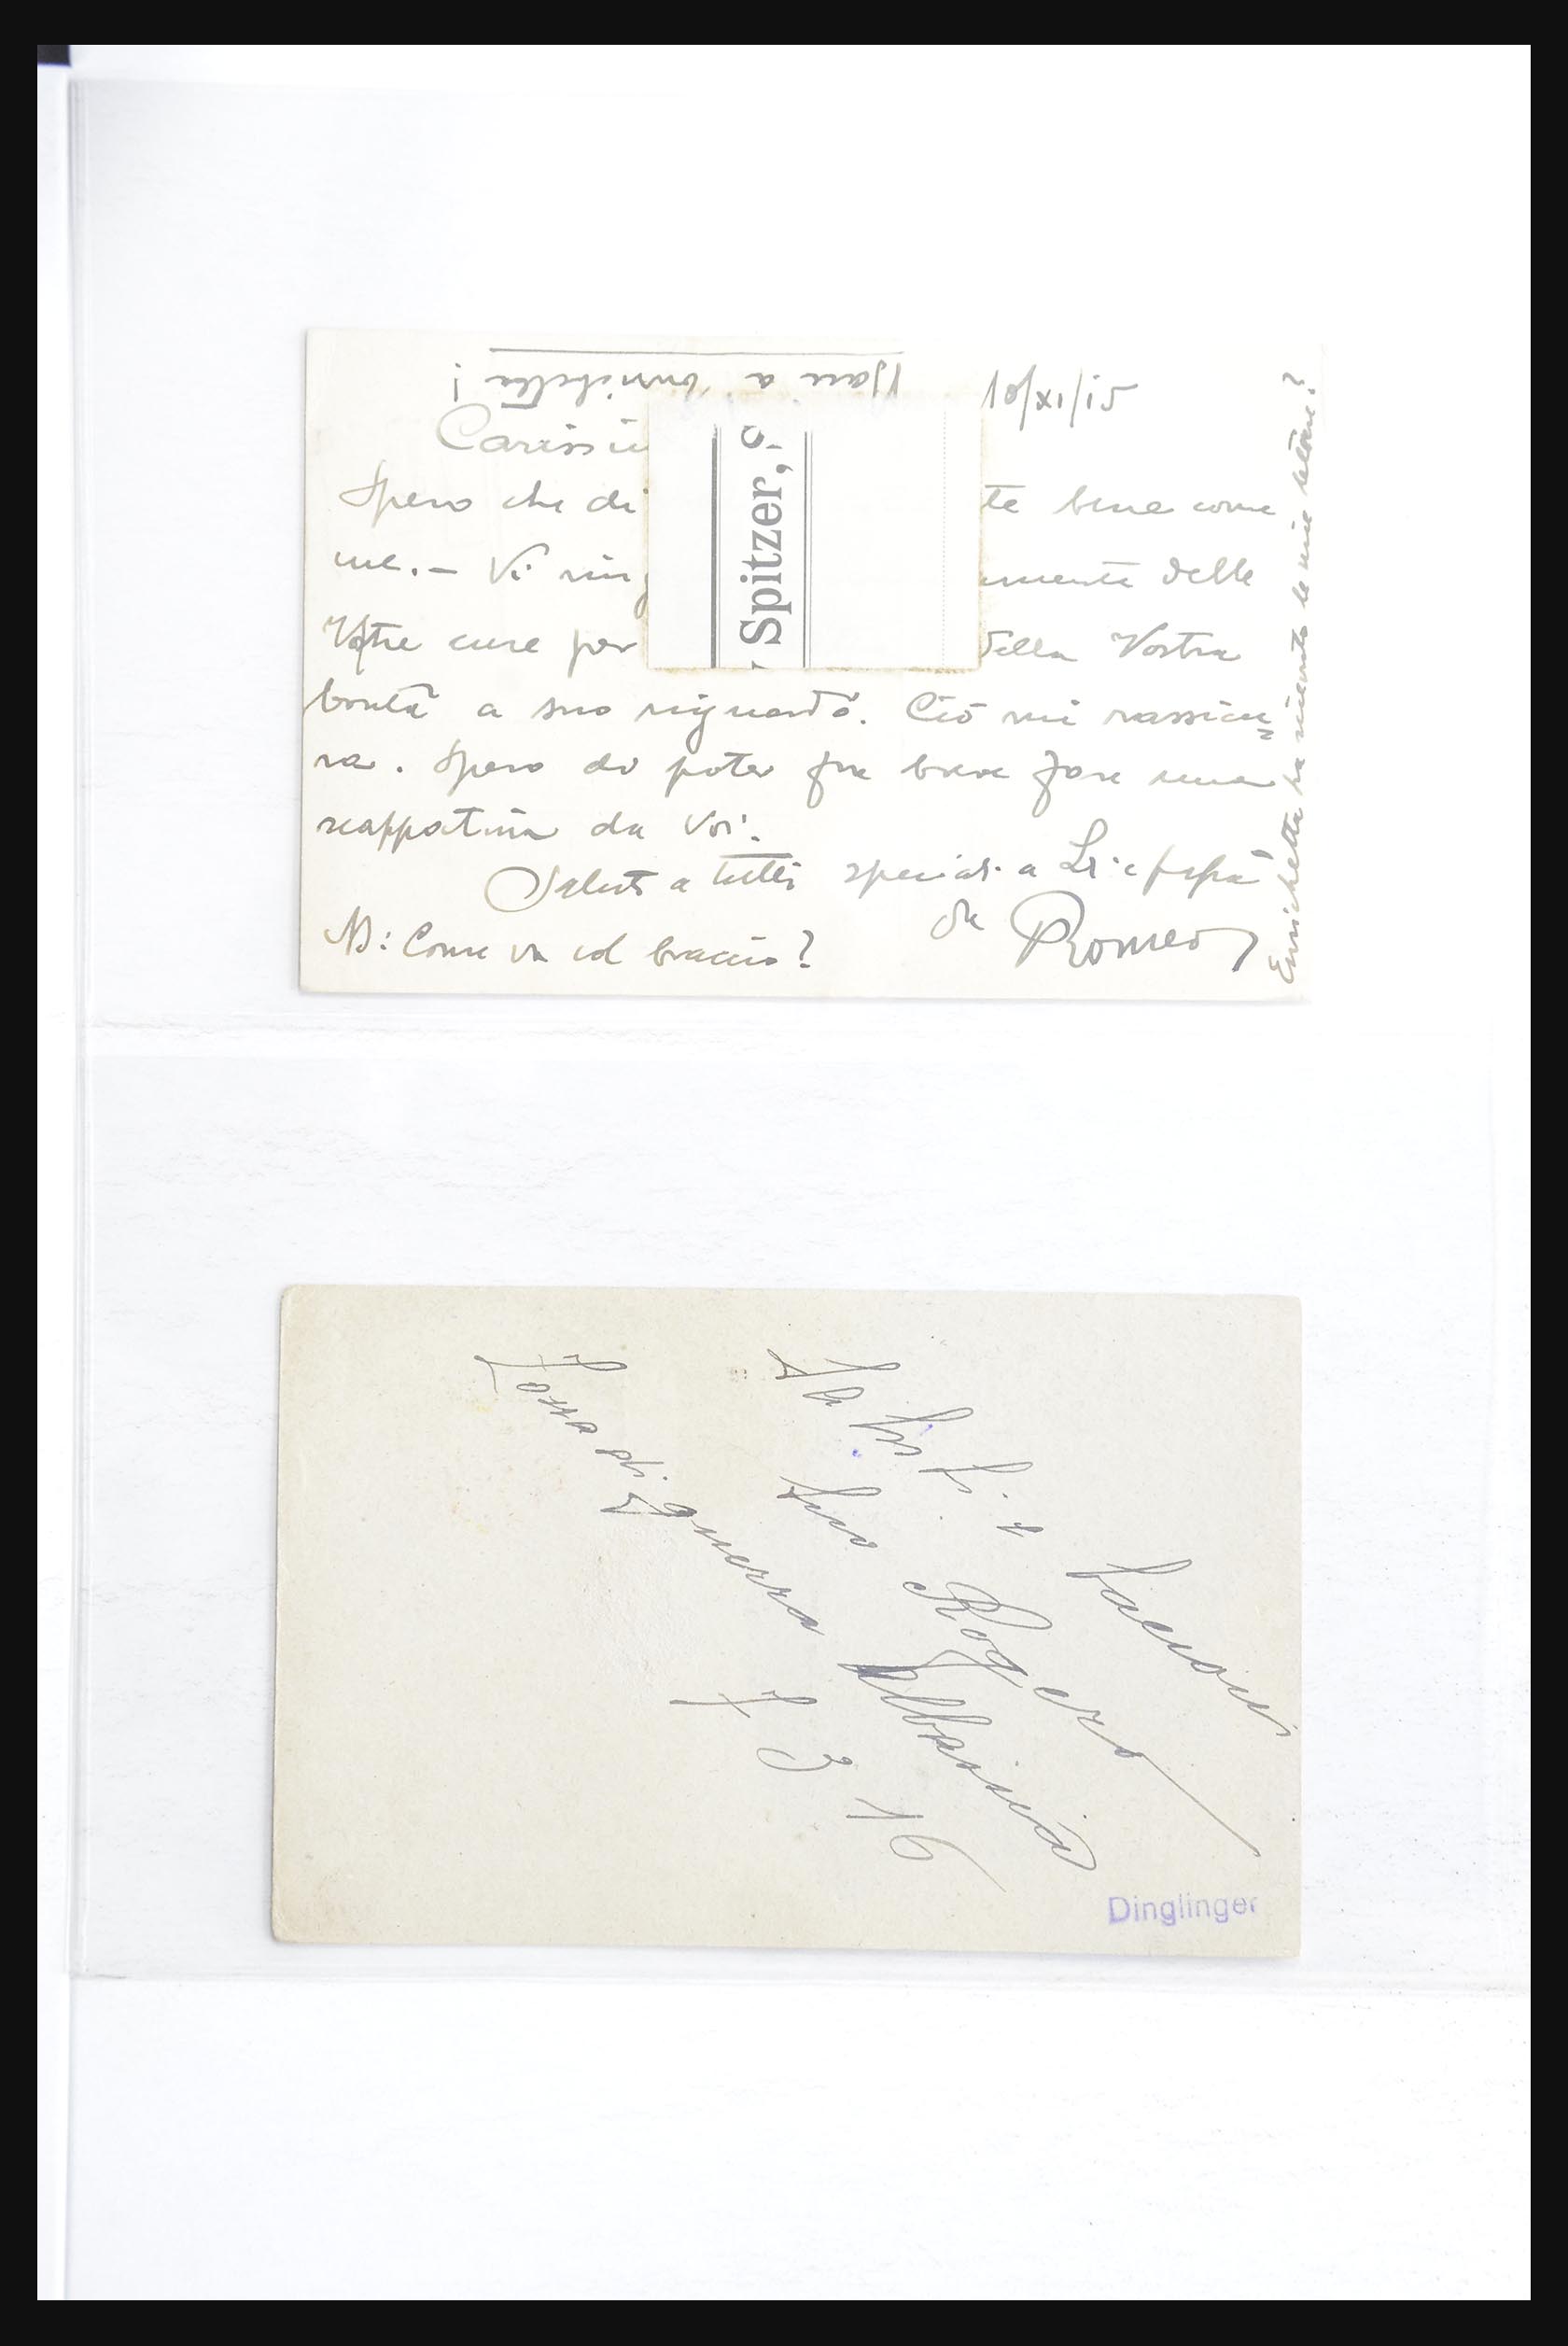 Baci a Enrichetta!
10/XI/15
Carissi
Spero che di te bene come
me. - Vi ring amente delle
Vostre cure per della Vostra
bontà a suo riguardo. Ciò mi rassicu=
ra. Spero di poter fra breve fare una
scappatina da Voi.
Saluti a tutti a e papà
da Romeo
NB: Come va col braccio?
Enrichetta ha ricevuto le mie
Spitzer,
Saluti e bacioni
tuo Rogero
Zona di guerra Albania
7 3 16
Dinglinger